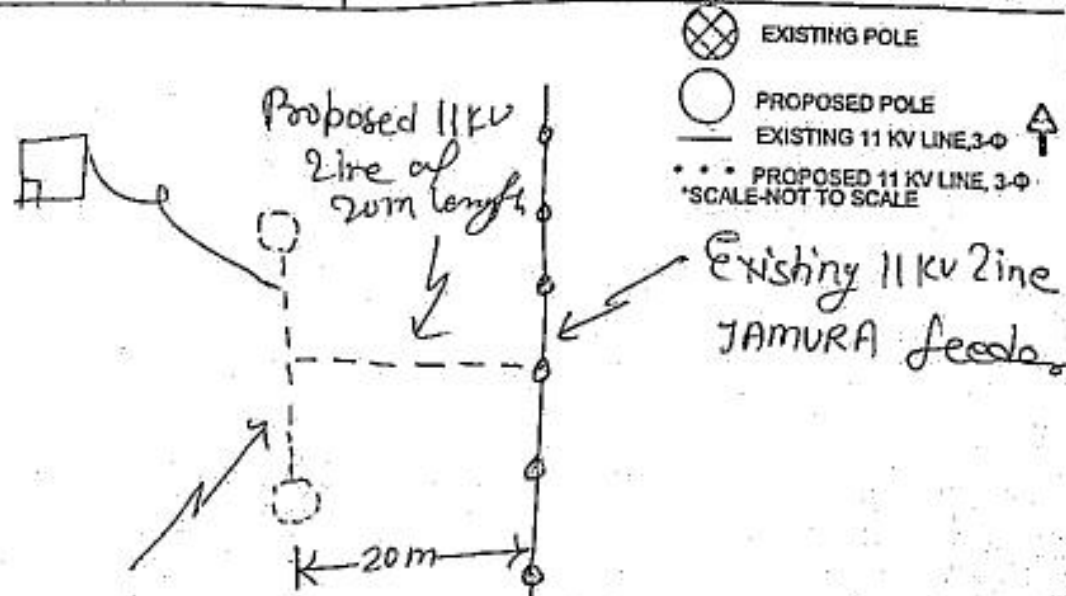 EXISTING POLE
PROPOSED POLE
EXISTING 11 KV LINE,3-Φ
PROPOSED 11 KV LINE, 3-Φ
*SCALE-NOT TO SCALE
Proposed 11KV
Line of
20m length
Existing 11KV Line
JAMURA feeder
20m